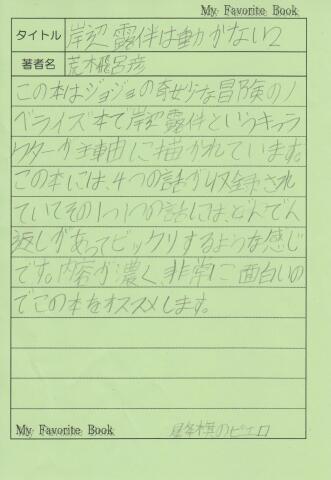 My Favorite Book
タイトル 岸辺露伴は動かない2
著者名 荒木飛呂彦
この本はジョジョの奇妙な冒険のノ
ベライズ本で岸辺露伴というキャラ
クターが主軸に描かれています。
この本には、4つの話が収録され
ていてその1つ1つの話には、どんでん
返しがあってビックリするような感じ
です。内容が濃く、非常に面白いの
でこの本をオススメします。
My Favorite Book のピエロ